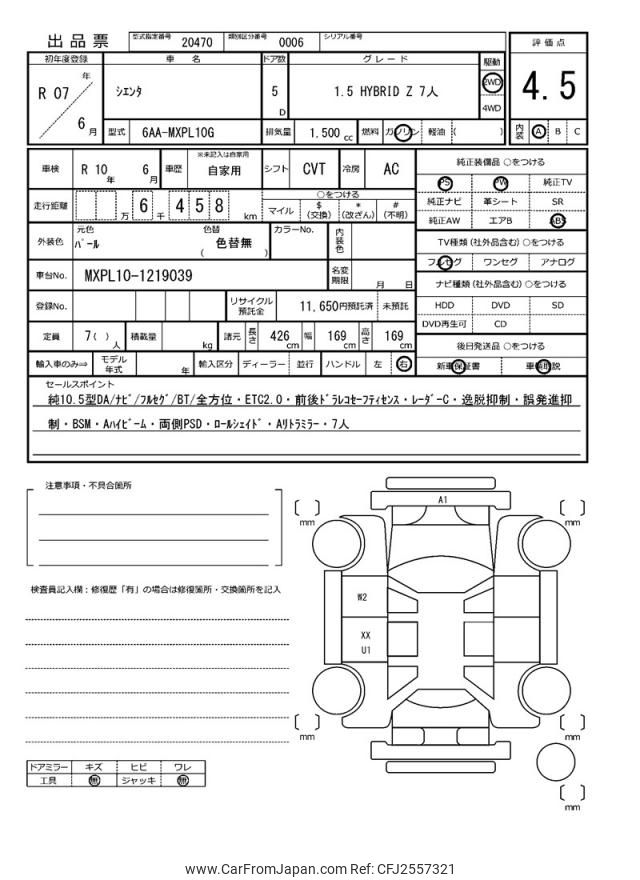 出品票
型式指定番号 20470 類別区分番号 0006 シリアル番号
評価点
4.5
内装 A B C
初年度登録 車名 ドア数 グレード 駆動
R 07 年 6 月
シエンタ 5 D 1.5 HYBRID Z 7人 2WD 4WD
型式 6AA-MXPL10G 排気量 1.500 cc 燃料 ガソリン 軽油 ( )
車検 R 10 年 6 月 車歴 ※未記入は自家用 自家用 シフト CVT 冷房 AC
走行距離 万 6 千 4 5 8 km
○をつける
マイル $ (交換) * (改ざん) # (不明)
外装色 元色 パール 色替 色替無 ( ) カラーNo. 内装色
車台No. MXPL10-1219039 名変期限 月 日
登録No. リサイクル預託金 11,650円預託済 未預託
定員 7( )人 積載量 kg 諸元 長さ 426 cm 幅 169 cm 高さ 169 cm
輸入車のみ⇒ モデル年式 年 輸入区分 ディーラー 並行 ハンドル 左 右
純正装備品 ○をつける
PS PW 純正TV
純正ナビ 革シート SR
純正AW エアB ABS
TV種類(社外品含む)○をつける
フルセグ ワンセグ アナログ
ナビ種類(社外品含む)○をつける
HDD DVD SD
DVD再生可 CD
後日発送品 ○をつける
新車保証書 車輌取説
セールスポイント
純10.5型DA/ナビ/フルセグ/BT/全方位・ETC2.0・前後ドラレコセーフティセンス・レーダーC・逸脱抑制・誤発進抑
制・BSM・Aハイビーム・両側PSD・ロールシェイド・Aリトラミラー・7人
注意事項・不具合箇所
検査員記入欄:修復歴「有」の場合は修復箇所・交換箇所を記入
A1
mm
mm
W2
XX
U1
mm
mm
mm
ドアミラー キズ ヒビ ワレ
工具 無 ジャッキ 無
www.CarFromJapan.com Ref: CFJ2557321